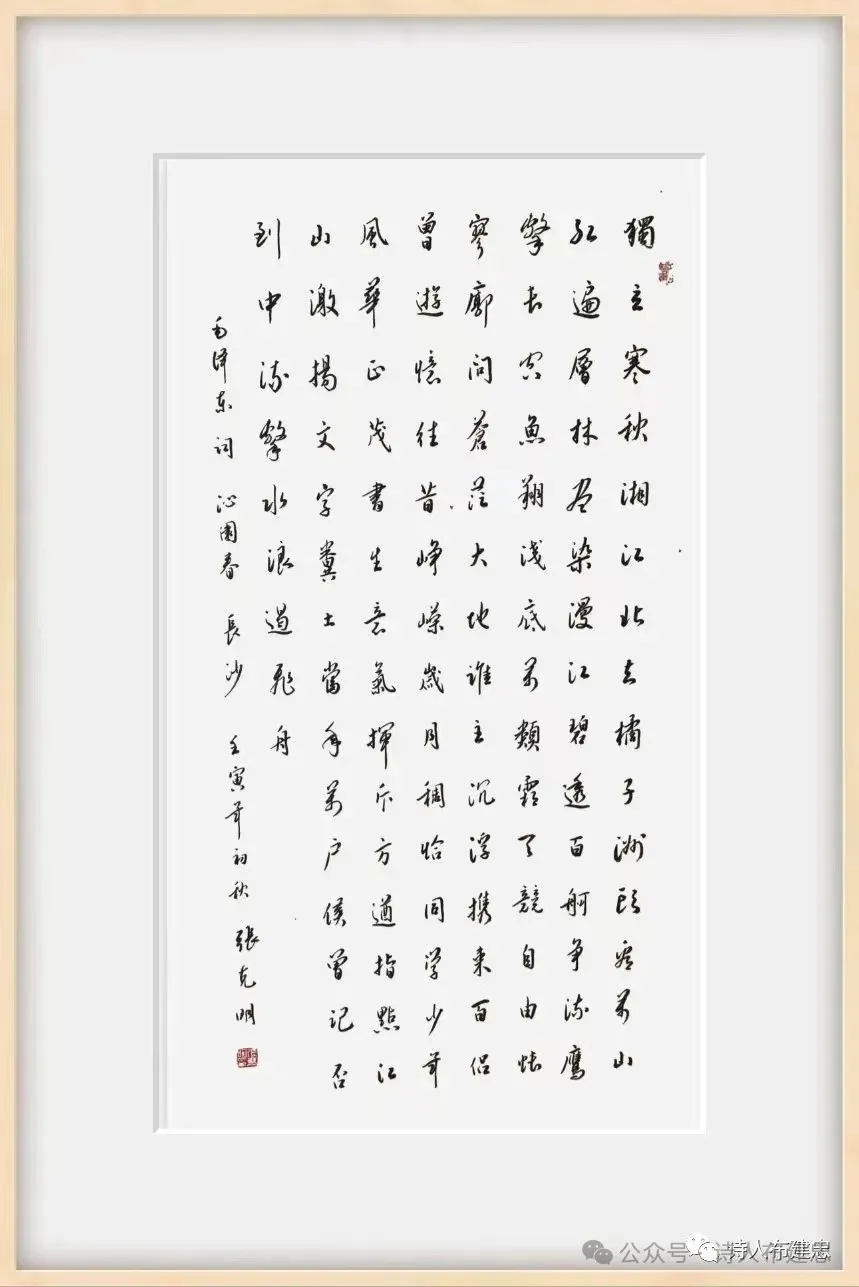 獨立寒秋湘江北去橘子洲頭看萬山
紅遍層林盡染漫江碧透百舸争流鷹
擊長空魚翔淺底萬類霜天競自由悵
寥廓問蒼茫大地誰主沉浮携來百侣
曾遊憶往昔崢嶸歲月稠恰同學少年
風華正茂書生意氣揮斥方遒指點江
山激揚文字糞土當年萬户侯曾記否
到中流擊水浪遏飛舟
毛泽东词 沁園春 長沙 壬寅年初秋 張克明
公众号·诗人布建忠
诗人布建忠